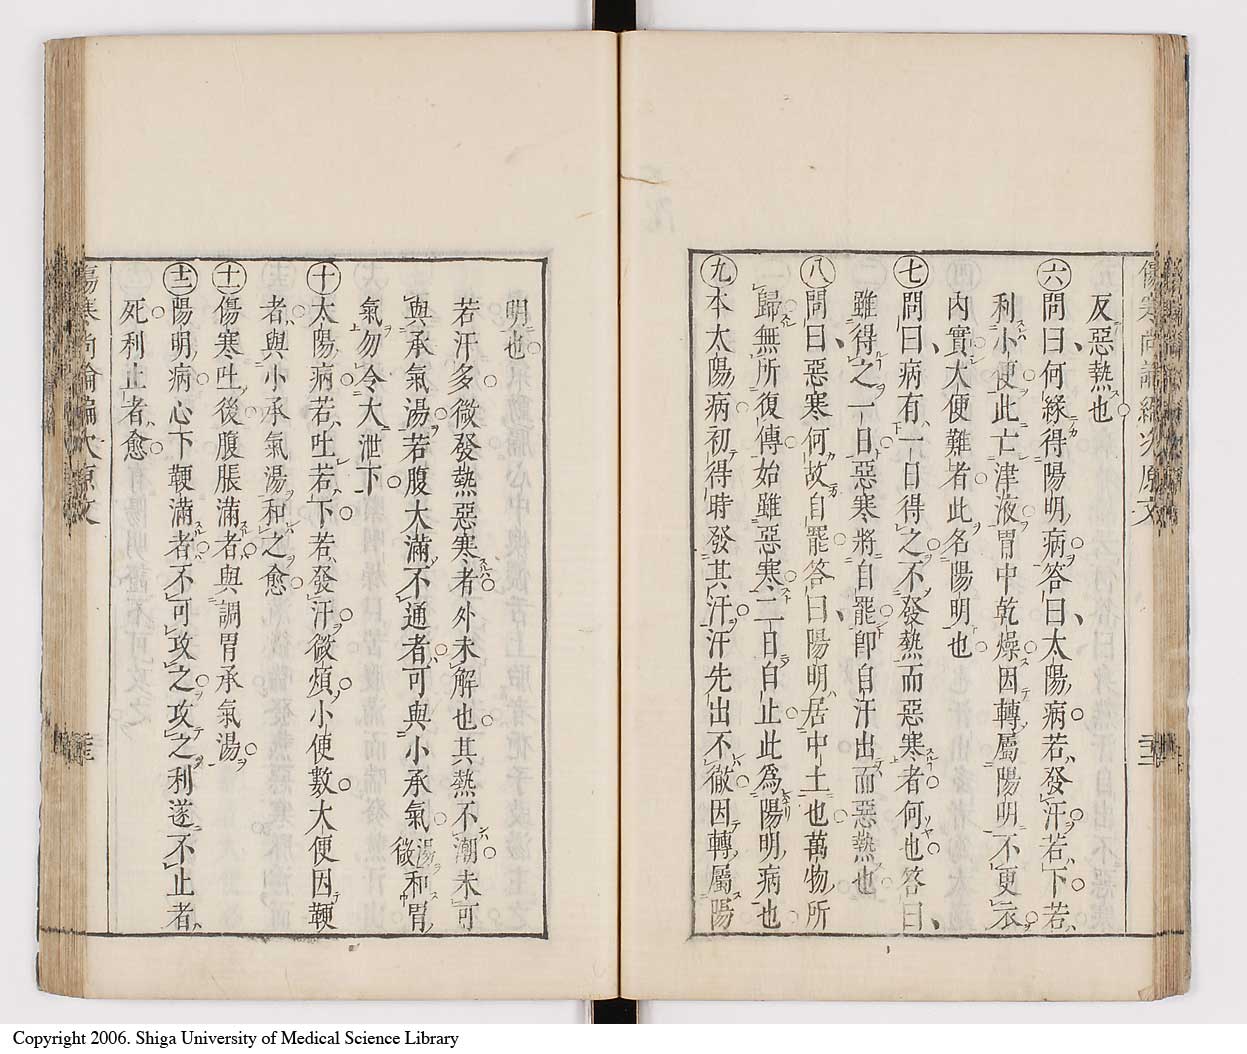 傷寒尚論編次原文
反惡熱也
六 問曰何緣得陽明病答曰太陽病若發汗若下若
利小便此亡津液胃中乾燥因轉屬陽明不更衣
內實大便難者此名陽明也
七 問曰病有一日得之不發熱而惡寒者何也答曰
雖得之一日惡寒將自罷卽自汗出而惡熱也
八 問曰惡寒何故自罷答曰陽明居中土也萬物所
歸無所復傳始雖惡寒二日自止此爲陽明病也
九 本太陽病初得時發其汗汗先出不徹因轉屬陽
明也
若汗多微發熱惡寒者外未解也其熱不潮未可
與承氣湯若腹大滿不通者可與小承氣湯微和胃
氣勿令大泄下
十 太陽病若吐若下若發汗微煩小便數大便因鞕
者與小承氣湯和之愈
十一 傷寒吐後腹脹滿者與調胃承氣湯
十二 陽明病心下鞕滿者不可攻之攻之利遂不止者
死利止者愈
傷寒尚論編次原文
Copyright 2006. Shiga University of Medical Science Library